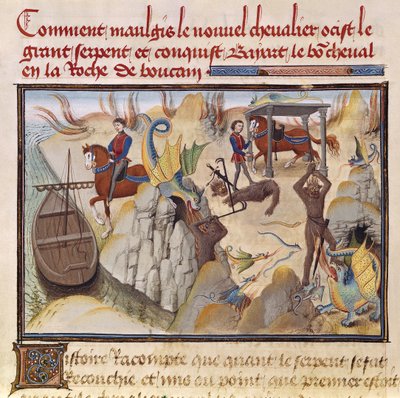 Comment maulgis le nouvel chevalier ocist le
grant serpent et conquist Baiart le bō cheval
en la Roche de boucam
Histoire Racompte que quant le serpent se fut
Reconchie et mis au point, que premier estoit